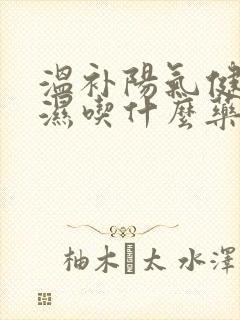 溫补陽氣健
濕喫什麼藥
柚木 太 水澤